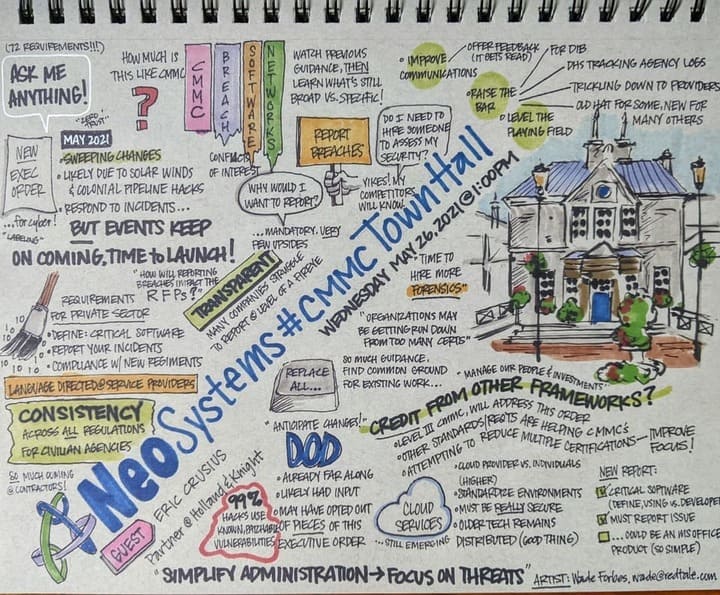 (72 REQUIREMENTS!!!)
ASK ME
ANYTHING!
HOW MUCH IS
THIS LIKE CMMC
?
CMMC
BREACH
SOFTWARE
NETWORKS
CONFLICTS
OF INTEREST
WATCH PREVIOUS
GUIDANCE, THEN
LEARN WHAT'S STILL
BROAD VS. SPECIFIC!
• IMPROVE
COMMUNICATIONS
OFFER FEEDBACK
(IT GETS READ)
• RAISE THE
BAR
FOR DIB
DHS TRACKING AGENCY LOGS
TRICKLING DOWN TO PROVIDERS
OLD HAT FOR SOME, NEW FOR
MANY OTHERS
• LEVEL THE
PLAYING FIELD
"ZERO
TRUST"
NEW
EXEC
ORDER
...for cyber!
"LABELING"
MAY 2021
• SWEEPING CHANGES
• LIKELY DUE TO SOLAR WINDS
& COLONIAL PIPELINE HACKS
• RESPOND TO INCIDENTS...
BUT EVENTS KEEP
ON COMING, TIME to LAUNCH!
REPORT
BREACHES
DO I NEED TO
HIRE SOMEONE
TO ASSESS MY
SECURITY?
YIKES! MY
COMPETITORS
WILL KNOW.
WHY WOULD I
WANT TO REPORT
...MANDATORY. VERY
FEW UPSIDES
TRANSPARENT
MANY COMPANIES STRUGGLE
TO REPORT @ LEVEL OF A FIREYE
"HOW WILL REPORTING
BREACHES IMPACT THE
RFPs?"
REQUIREMENTS
FOR PRIVATE
SECTOR
• DEFINE: CRITICAL SOFTWARE
• REPORT YOUR INCIDENTS
• COMPLIANCE W/ NEW REGIMENTS
LANGUAGE DIRECTED @ SERVICE PROVIDERS
CONSISTENCY
ACROSS ALL REGULATIONS
FOR CIVILIAN AGENCIES
SO MUCH COMING
@ CONTRACTORS!
NeoSystems #CMMC Town Hall
WEDNESDAY MAY 26, 2021 @ 1:00PM
GUEST
ERIC CRUSIUS
Partner @ Holland & Knight
TIME TO
HIRE MORE
FORENSICS
"ORGANIZATIONS MAY
BE GETTING RUN DOWN
FROM TOO MANY CERTS"
SO MUCH GUIDANCE.
FIND COMMON GROUND
FOR EXISTING WORK...
REPLACE
ALL...
"ANTICIPATE CHANGES!"
DOD
• ALREADY FAR ALONG
• LIKELY HAD INPUT
• MAY HAVE OPTED OUT
OF PIECES OF THIS
EXECUTIVE ORDER
99%
HACKS USE
KNOWN, PATCHABLE
VULNERABILITIES
"MANAGE OUR PEOPLE & INVESTMENTS"
CREDIT FROM OTHER FRAMEWORKS?
• LEVEL III CMMC, WILL ADDRESS THIS ORDER
• OTHER STANDARDS/REQTS ARE HELPING CMMC'S
• ATTEMPTING TO REDUCE MULTIPLE CERTIFICATIONS — IMPROVE
FOCUS!
CLOUD
SERVICES
...STILL EMERGING
• CLOUD PROVIDER VS. INDIVIDUALS
(HIGHER)
• STANDARDIZE ENVIRONMENTS
• MUST BE REALLY SECURE
• OLDER TECH REMAINS
DISTRIBUTED (GOOD THING)
NEW REPORT:
CRITICAL SOFTWARE
(DEFINE, USING vs. DEVELOPE
MUST REPORT ISSUE
...COULD BE AN MS OFFICE
PRODUCT (SO SIMPLE)
"SIMPLIFY ADMINISTRATION → FOCUS ON THREATS"
ARTIST: Wade Forbes, wade@redtale.com